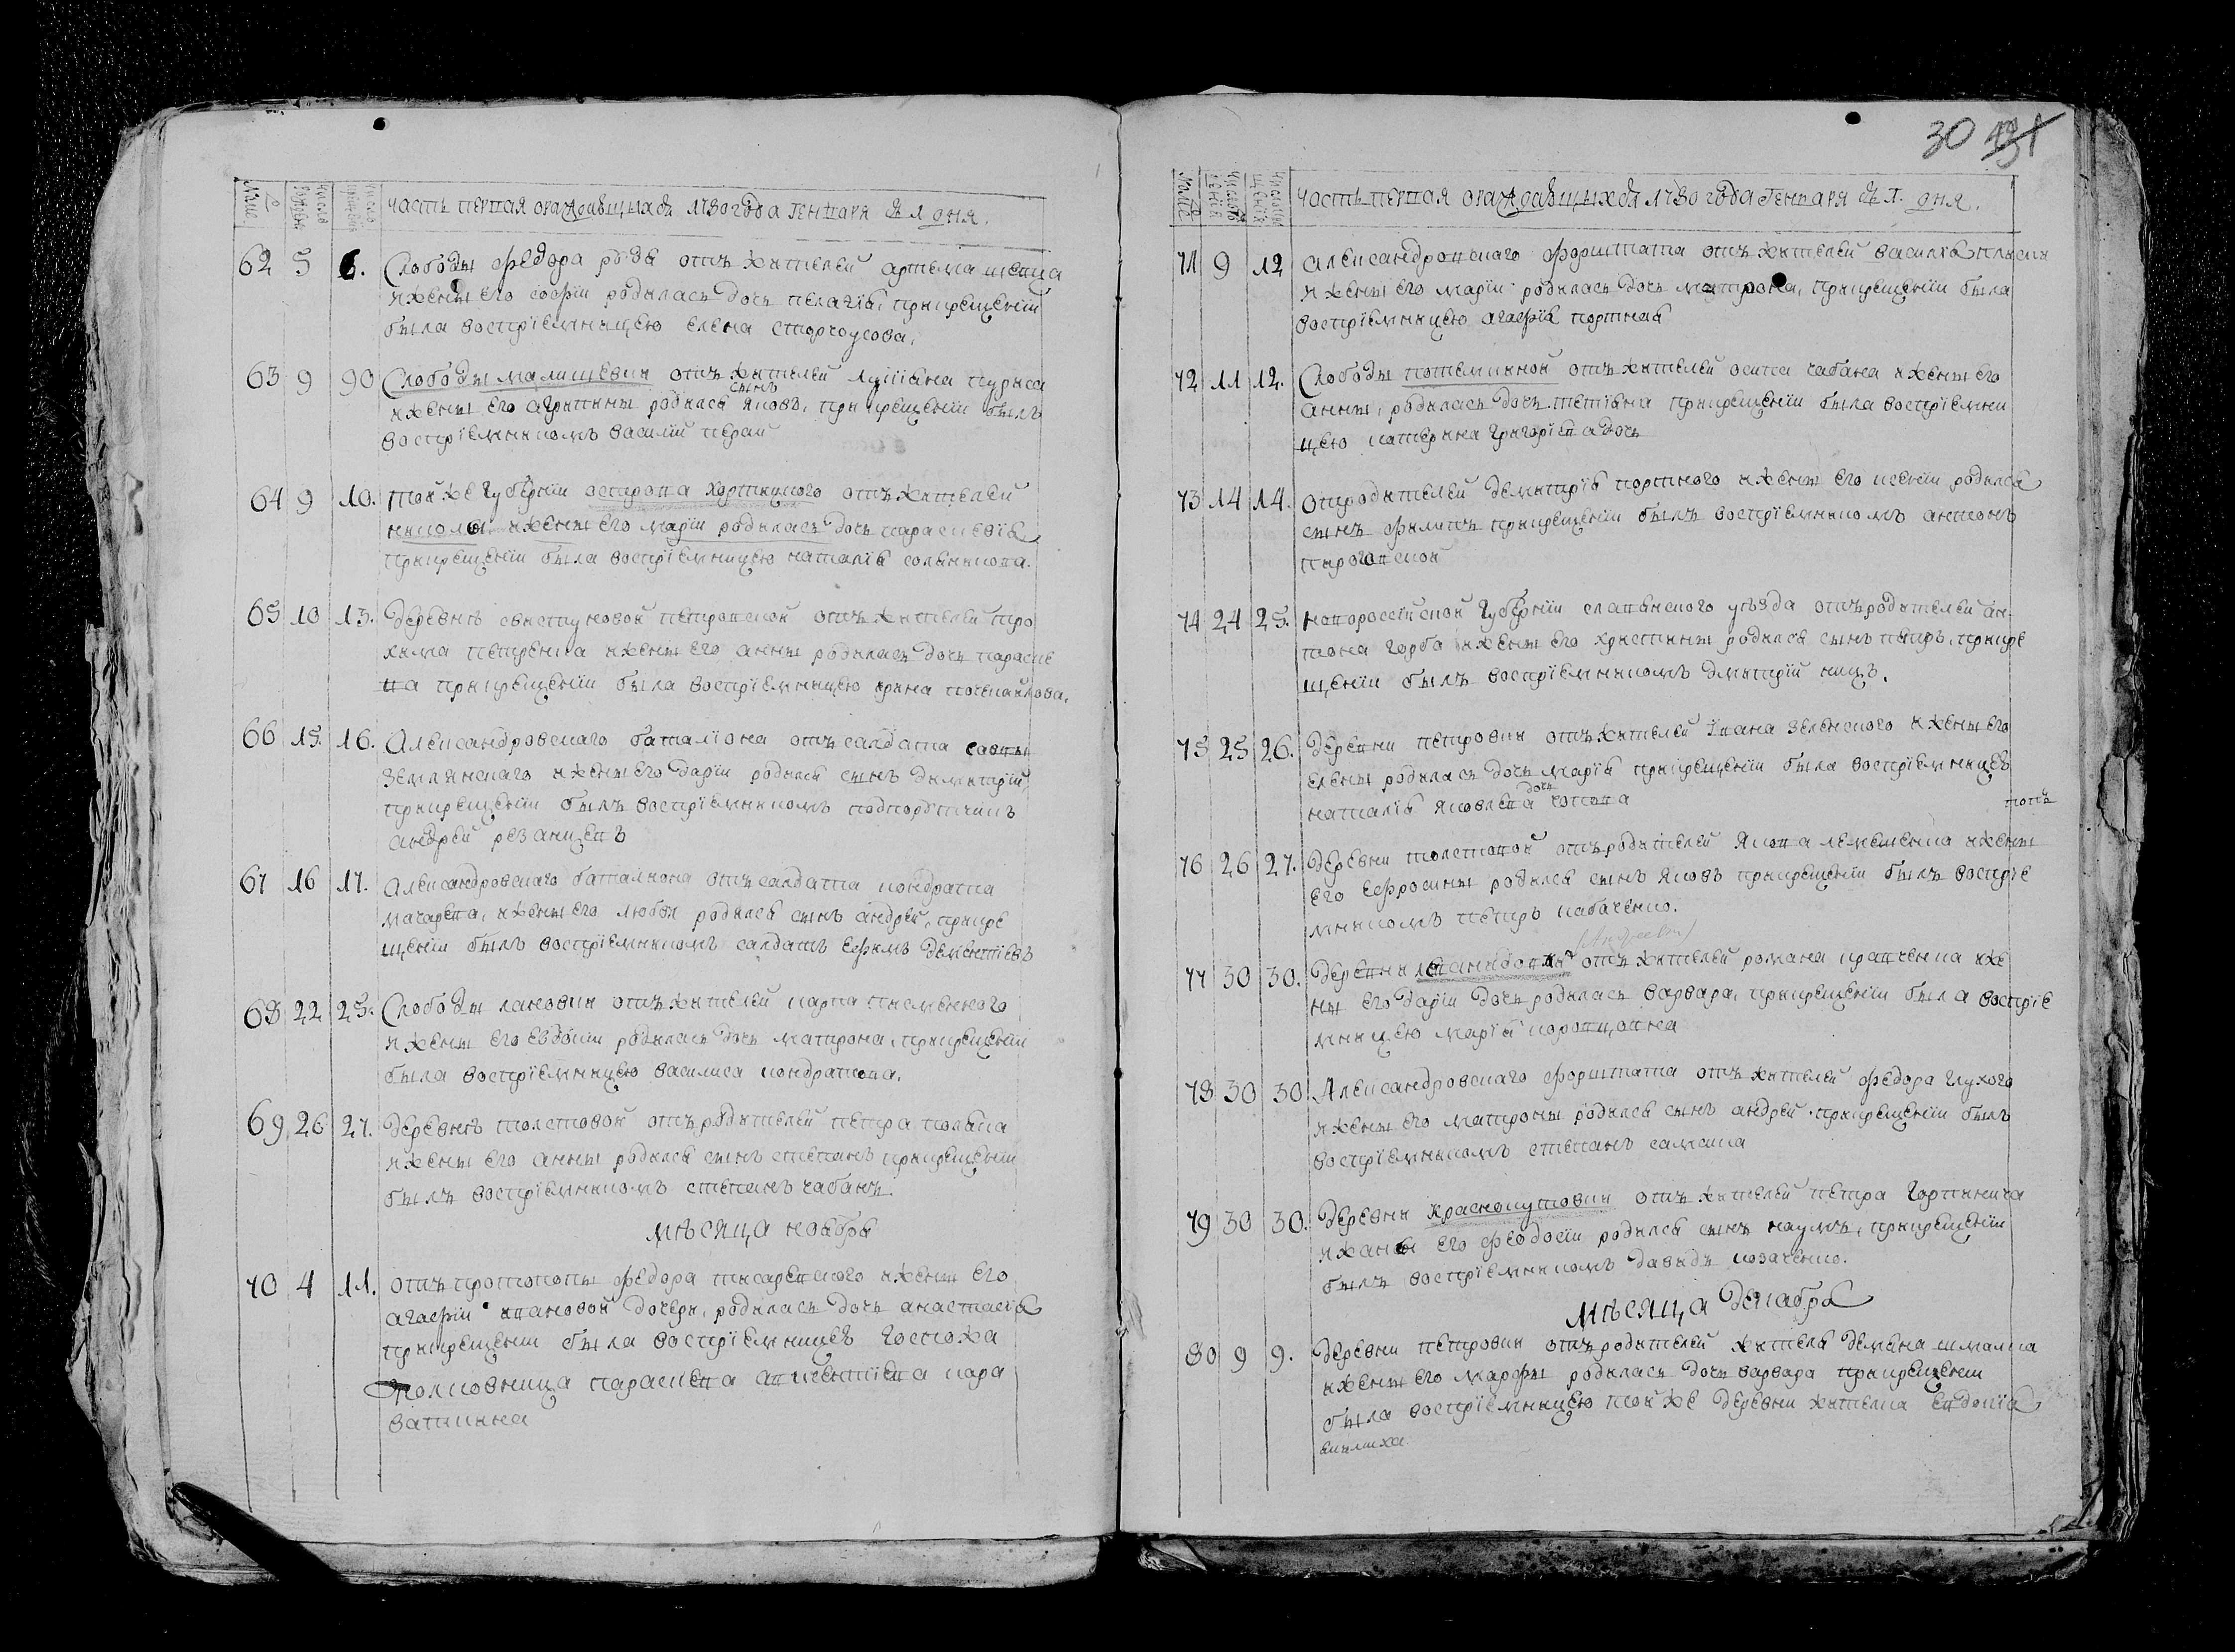 30 131
№ числа рожден числа крещен
часть первая ораждавшихся 1780 года Генваря съ 1 дня.
62 5 6. Слободы Федора отъ жителей артема швеца
и жены его софіи родилась дочь пелагія, прикрещеніи
была воспріемницею елена сторчоусова,
63 9 90 Слободы малишевки отъ жителей пурыса
сынъ
и жены его агрипины родился яковъ, прикрещеніи былъ
воспріемникомъ василій
64 9 10. той же губерніи острова хортицкого отъ жителей
николы и жены его маріи родилась дочь параскевія
прикрещеніи была воспріемницею наталія
65 10 13. деревнѣ свистуновой петровской отъ жителей тро
хима петренка и жены его анны родилась дочь параске
ва прикрещеніи была воспріемницею ирина
66 15. 16. Александровскаго баталіона отъ салдата саввы
землянскаго и жены его даріи родился сынъ димитрій,
прикрещеніи былъ воспріемникомъ подпорутчикъ
андрей резанцевъ
67 16 17. Александровскаго баталиона отъ салдата кондрата
макарева, и жены его любви родился сынъ андрей, прикре
щеніи былъ воспріемникомъ салдатъ ефимъ дементіевъ
68 22 23. Слободы отъ жителей карпа писменного
и жены его евдокіи родилась дочь матрона, прикрещеніи
была воспріемницею василиса кондратова.
69 26 27. деревнѣ толстовой отъ родителей петра
и жены его анны родился сынъ степанъ прикрещеніи
былъ воспріемникомъ степанъ чабанъ.
мѣсяца ноября
70 4 11. отъ протопопы федора писаревского и жены его
агафіи ивановой дочери, родилась дочь анастасія
прикрещеніи была воспріемницею госпожа
полковница параскева авксентіева кара
ватинка
№ числа рожденія числа крещенія
часть первая ораждавшихся 1780 года Генваря съ 1. дня.
71 9 12 александровскаго форштата отъ жителей василія
и жены его маріи родилась дочь матрона, прикрещеніи была
воспріемницею агафія портная
72 11 12. Слободы потемкиной отъ жителей осипа чабана и жены его
анны, родилась дочь тетіяна прикрещеніи была воспріемни
цею катерина григоріева дочь
73 14 14. отродителей демитрія портного и жены его ксеніи родился
сынъ филипъ прикрещеніи былъ воспріемникомъ антонъ
пироговской
74 24 25. новоросійской губерніи славянского уѣзда отъ родителей ан-
тона горба и жены его христины родился сынъ петръ, прикре
щеніи былъ воспріемникомъ дмитрій кицъ.
75 25 26. деревни петровки отъ жителей івана зеленского и жены его
елены родилась дочь марія прикрещеніи была воспріемницею
дочь
наталія яковлева
76 26 27. деревни толстовой отъ родителей якова лемешенка и жены
его ефросины родился сынъ яковъ прикрещеніи былъ воспріе
мникомъ петръ кабаченко.
77 30 30. деревни отъ жителей романа кравченка и же
ны его даріи дочь родилась варвара, прикрещеніи была воспріе
мницею марія
78 30 30 Александровскаго форштата отъ жителей федора глухого
и жены его матроны родился сынъ андрей прикрещеніи былъ
воспріемникомъ степанъ
79 30 30. деревни краснокутовки отъ жителей петра горпинича
и жаны его феодосіи родился сынъ наумъ, прикрещеніи
былъ воспріемникомъ давыдъ козаченко.
мѣсяца декабря
80 9 9. деревни петровки отъ родителей жителя демяна шмалка
и жены его марфы родилась дочь варвара прикрещеніи
была воспріемницею той же деревни жителка евдокія